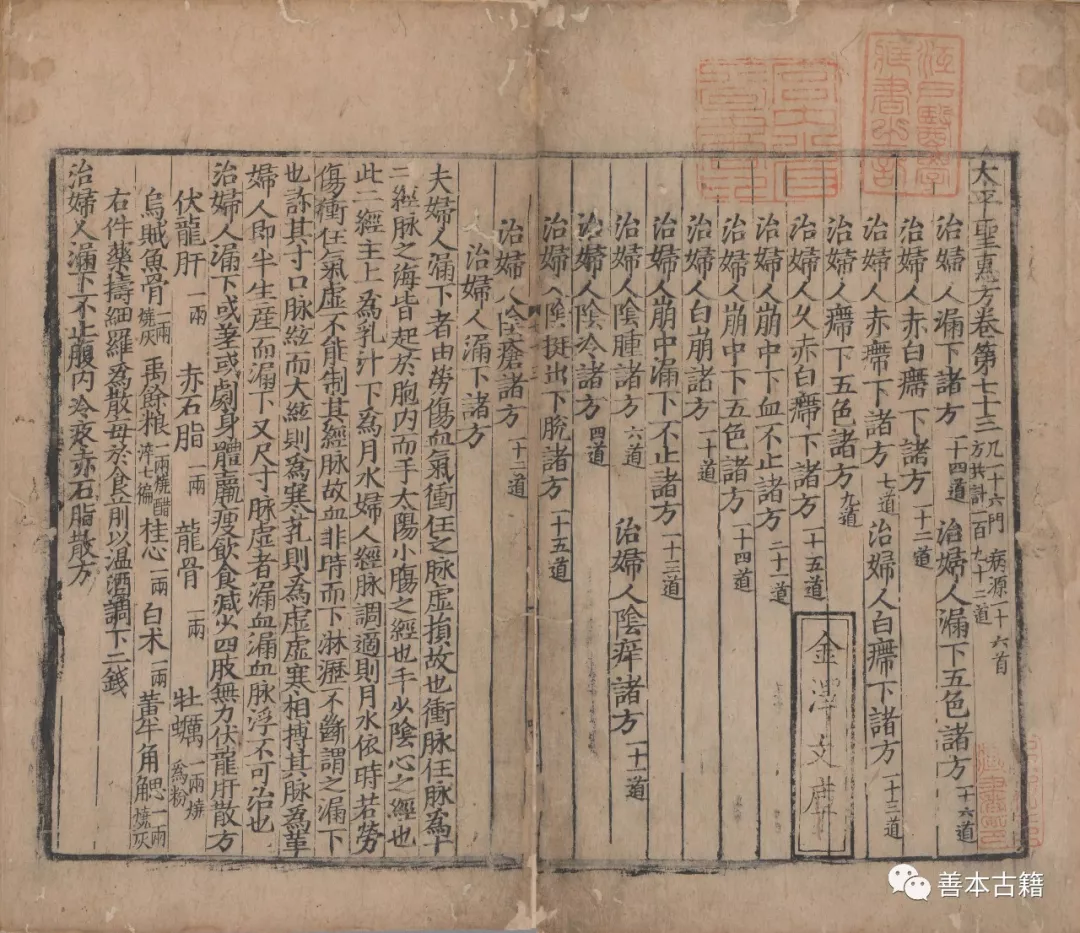 太平聖惠方卷第七十三 凡一十六門 病源一十六首 方共計一百九十二道
治婦人漏下諸方 一十四道 治婦人漏下五色諸方 一十六道
治婦人赤白癦下諸方 一十二道
治婦人赤癦下諸方 七道 治婦人白癦下諸方 一十三道
治婦人癦下五色諸方 九道
治婦人久赤白癦下諸方 一十五道
治婦人崩中下血不止諸方 二十一道
治婦人崩中下五色諸方 一十四道
治婦人白崩諸方 一十道
治婦人崩中漏下不止諸方 一十三道
治婦人陰腫諸方 六道 治婦人陰痒諸方 一十一道
治婦人陰冷諸方 四道
治婦人陰挺出下脫諸方 一十五道
治婦人陰瘡諸方 一十二道
治婦人漏下諸方
夫婦人漏下者由勞傷血氣衝任之脉虛損故也衝脉任脉爲十
二經脉之海皆起於胞內而手太陽小腸之經也手少陰心之經也
此二經主上爲乳汁下爲月水婦人經脉調適則月水依時若勞
傷衝任氣虛不能制其經脉故血非時而下淋瀝不斷謂之漏下
也診其寸口脉絃而大絃則爲寒乳則爲虛虛寒相搏其脉爲革
婦人即半生産而漏下又尺寸脉虛者漏血漏血脉浮不可治也
治婦人漏下或差或劇身體羸瘦飲食減少四肢無力伏龍肝散方
伏龍肝 一兩 赤石脂 一兩 龍骨 一兩 牡蠣 一兩燒爲粉
烏賊魚骨 一兩燒灰 禹餘粮 一兩燒醋淬七徧 桂心 一兩 白朮 一兩 黃牛角䚡 一兩燒灰
右件藥擣細羅爲散每於食前以温酒調下二錢
治婦人漏下不止腹內冷疼赤石脂散方
金澤文庫
江戶醫學藏書之記
善本古籍